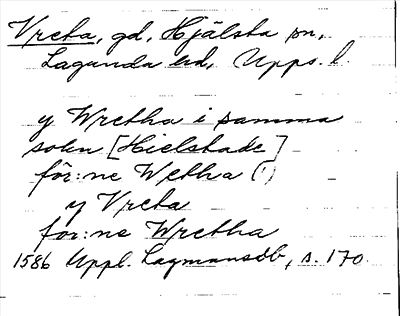 Vreta, gd, Hjälsta sn,
Lagunda hd, Upps. l.
y Wretha i samma
sokn [Hielstade]
för:ne Wetha (!)
y Vreta
för:ne Wretha
1586 Uppl. Lagmansdb, s. 170.